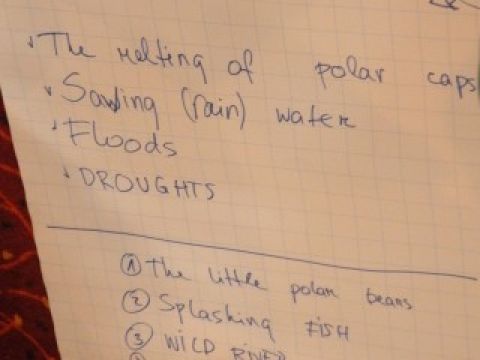 The melting of polar caps
Saving (rain) water
Floods
DROUGHTS
① The little polar bears
② Splashing FISH
③ WILD RIVER